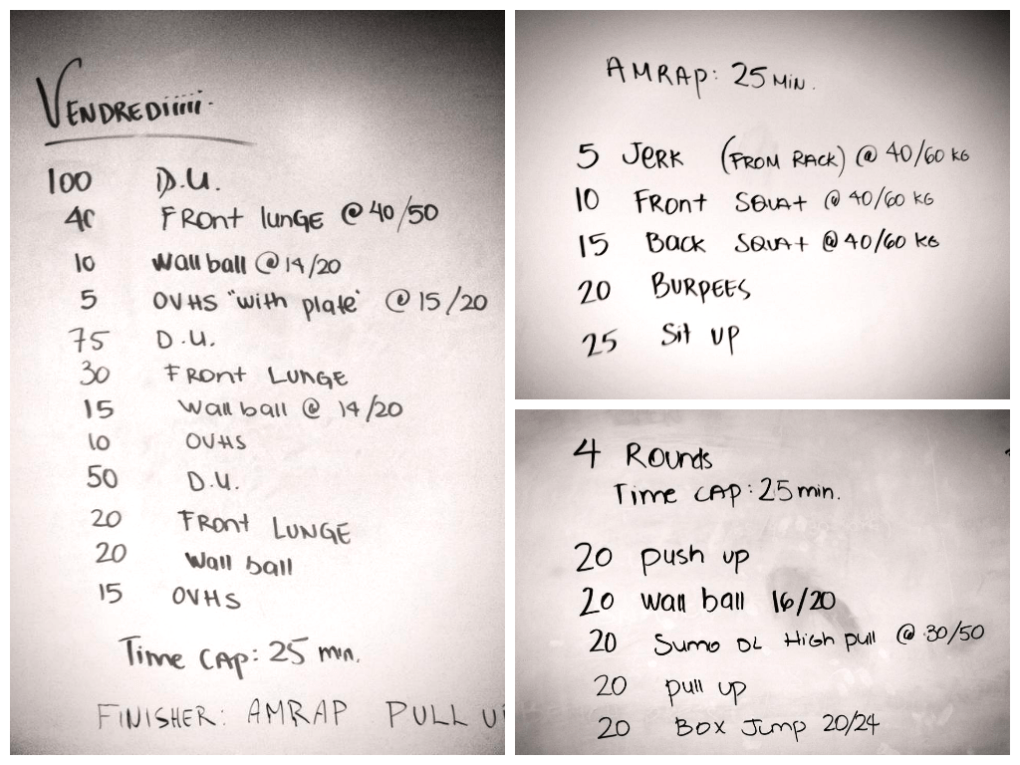 VENDREDiiiii.
100 D.U.
40 FRont lunGE @ 40/50
10 Wall ball @ 14/20
5 OVHS "with plate" @ 15/20
75 D.U.
30 FRont LUNGE
15 Wall ball @ 14/20
10 OVHS
50 D.U.
20 FRont LUNGE
20 Wall ball
15 OVHS
Time CAP: 25 min.
FINISHER: AMRAP PULL U
AMRAP: 25 MiN.
5 JERK (FROM RACK) @ 40/60 KG
10 FRont SQUAt @ 40/60 KG
15 BACK SQUAt @ 40/60 KG
20 BURPEES
25 Sit UP
4 ROunds
Time CAP: 25 min.
20 push up
20 wall ball 16/20
20 Sumo DL High pull @ 30/50
20 pull up
20 BOX Jump 20/24